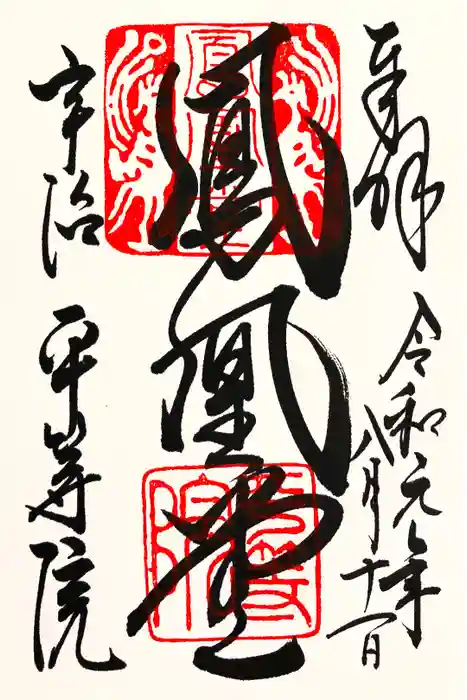 奉拝
令和元年
八月十一日
鳳凰堂
宇治
平等院